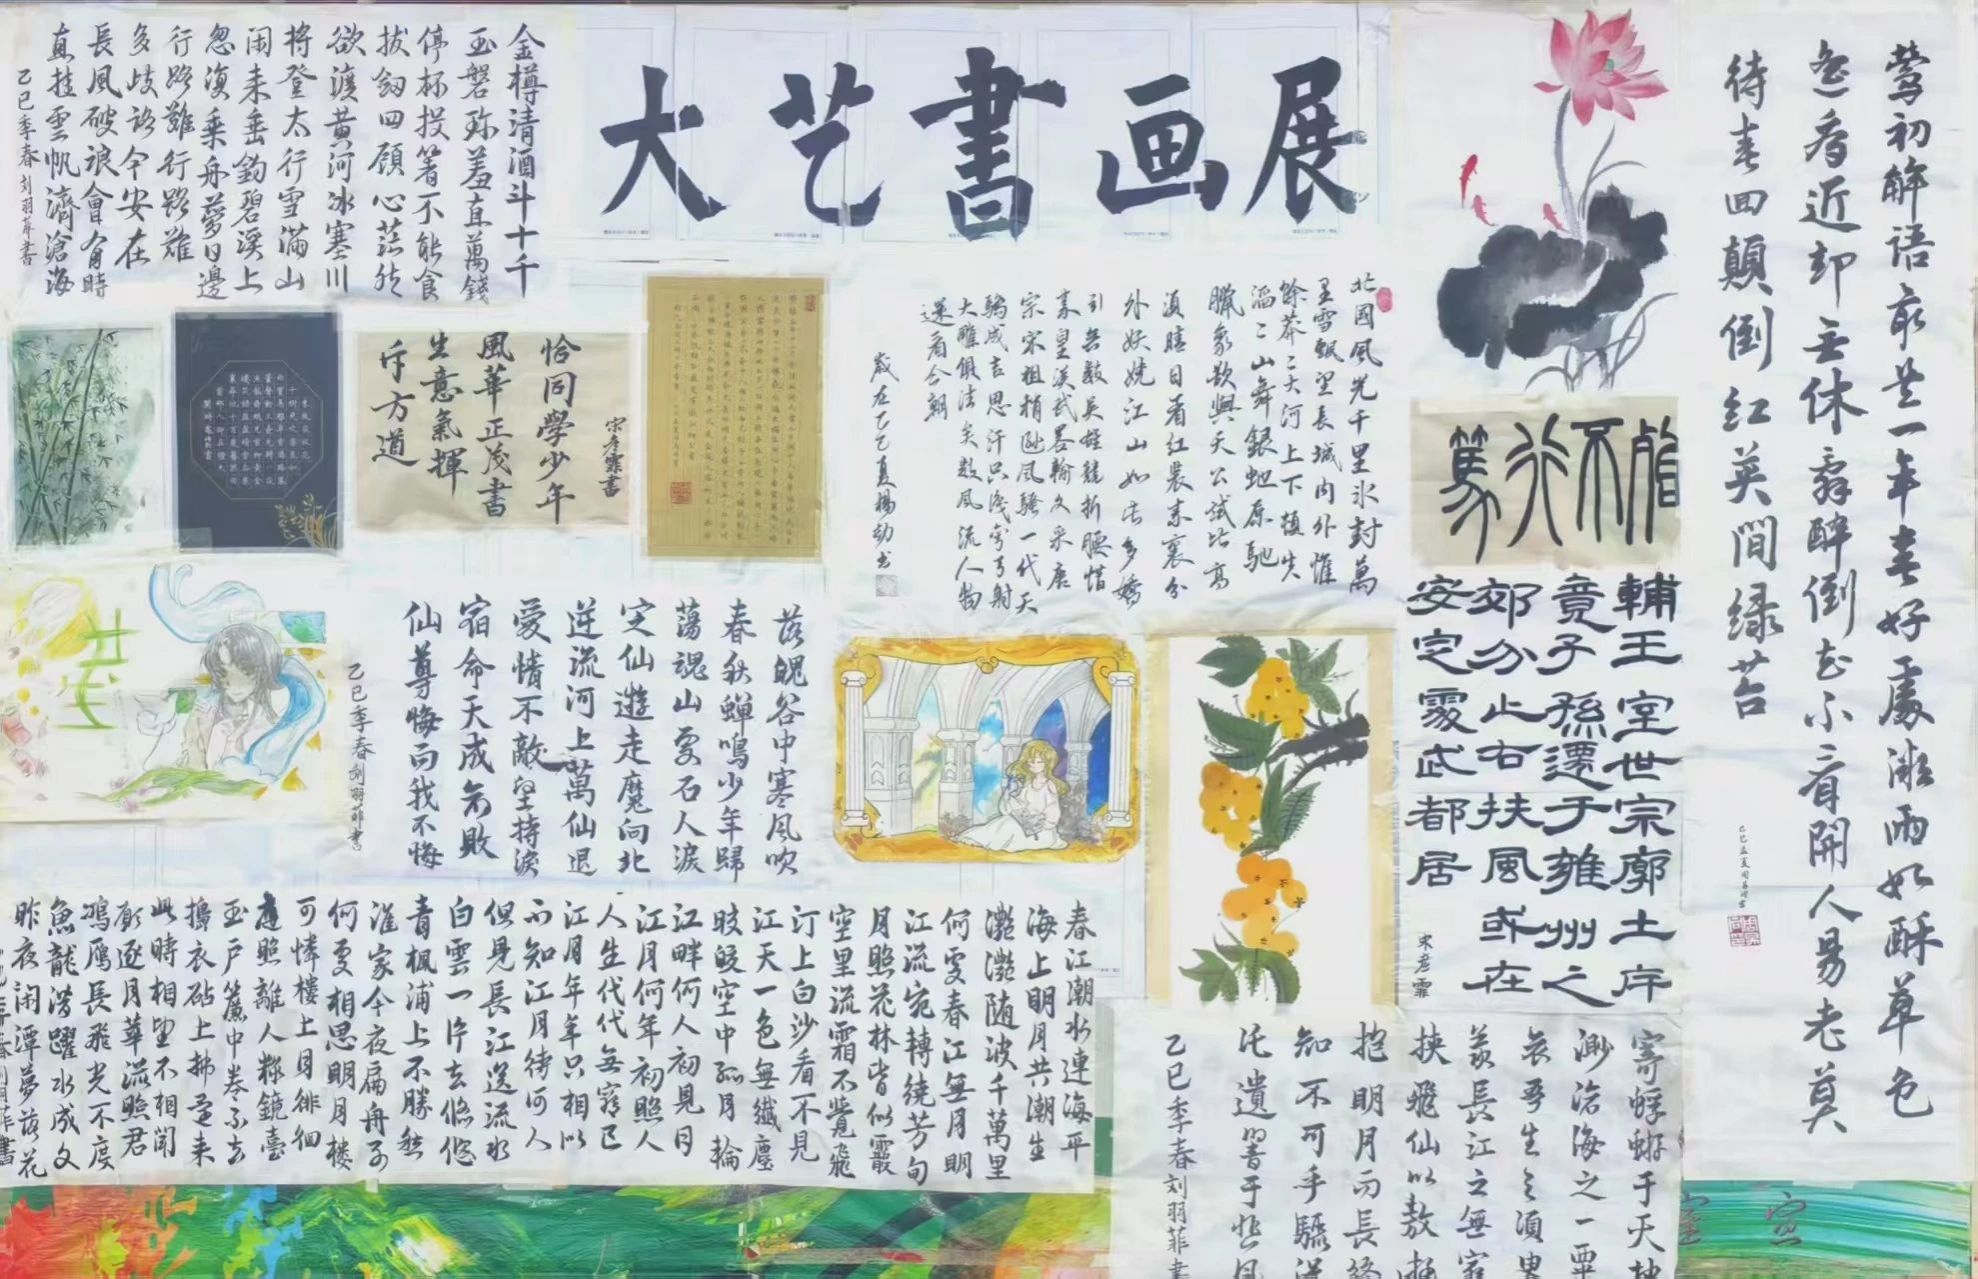 大艺書画展
金樽清酒斗十千
玉磐珎羞直萬錢
停杯投箸不能食
拔劒四顧心茫然
欲渡黄河冰塞川
将登太行雪滿山
闲来垂釣碧溪上
忽復乘舟夢日邊
行路難行路難
多歧路今安在
長風破浪會有時
直挂雲帆濟滄海
乙巳季春刘羽菲書
恰同學少年
風華正茂書
生意氣揮
斥方遒
宋彦霏書
北國風光千里氷封萬
里雪飄望長城内外惟
餘莽〻大河上下頓失
滔〻山舞銀蛇原馳
臘象欲與天公試比高
須晴日看紅裝素裹分
外妖娆江山如此多嬌
引無數英雄競折腰惜
秦皇漢武畧輸文采唐
宗宋祖稍遜風騷一代天
驕成吉思汗只識弯弓射
大雕俱往矣数風流人物
還看今朝
歲在乙巳夏楊幼书
鶯初解语最是一年春好處微雨如酥草色
遥看近却无休辭醉倒花不看開人易老莫
待春回顛倒红英間绿苔
篤行不倦
輔王室世宗廓土斥
竟子孫遷于雍州之
郊分止右扶風或在
安定霰武都居
宋彦霏
落魄谷中寒風吹
春秋蟬鳴少年歸
蕩魂山處石人淚
定仙遊走魔向北
逆流河上萬仙退
愛情不敵堅持淚
宿命天成命敗
仙尊悔而我不悔
乙巳季春刘羽菲書
春江潮水連海平
海上明月共潮生
灩灩随波千萬里
何處春江無月明
江流宛轉繞芳甸
月照花林皆似霰
空里流霜不覺飛
汀上白沙看不見
江天一色無纖塵
皎皎空中孤月輪
江畔何人初見月
江月何年初照人
人生代代無窮已
江月年年只相似
不知江月待何人
但見長江送流水
白雲一片去悠悠
青楓浦上不勝愁
誰家今夜扁舟子
何處相思明月楼
可憐樓上月徘徊
應照離人粧鏡臺
玉戶簾中卷不去
搗衣砧上拂還来
此時相望不相聞
願逐月華流照君
鴻雁長飛光不度
魚龍潜躍水成文
昨夜闲潭夢落花
寄蜉蝣于天地
渺沧海之一粟
哀吾生之須臾
羡長江之無窮
挾飛仙以敖遊
抱明月而長終
知不可乎驟
託遺響于悲風
乙巳季春刘羽菲書